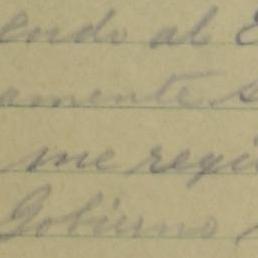 endo al E
amente s
me regi
Gobierno s